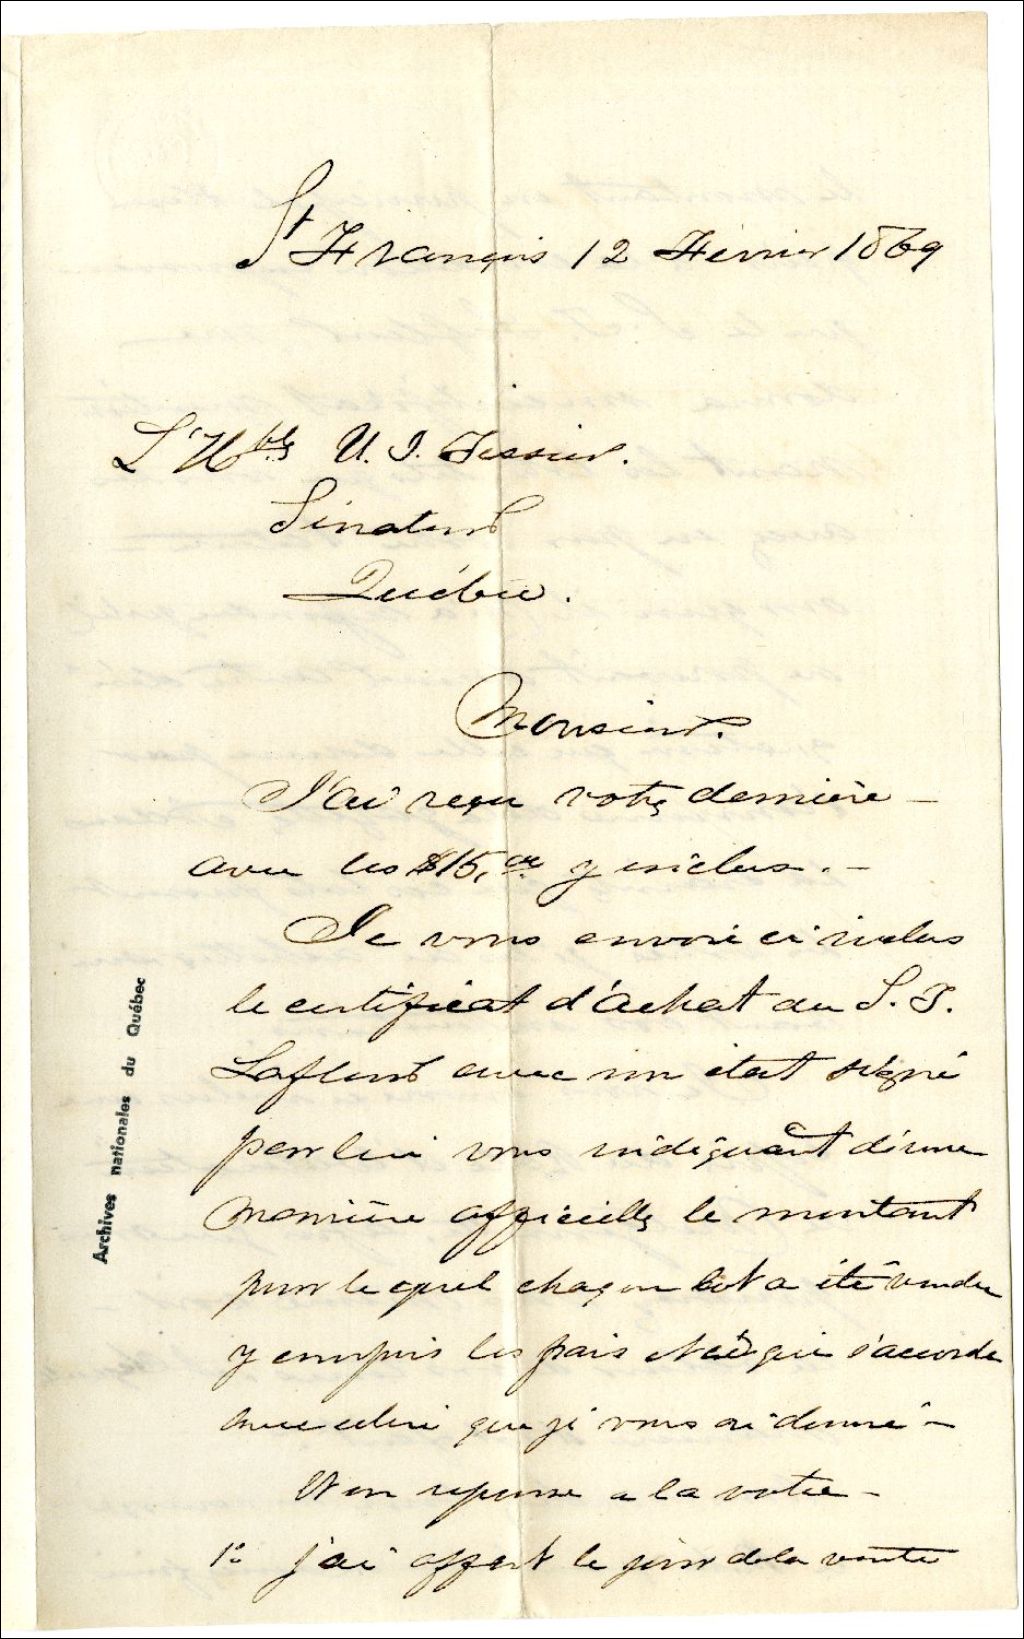 St François 12 Février 1869
L'Hble U. J. Tessier.
Sénateur
Québec.
Monsieur.
J'ai reçu votre dernière —
avec les $15,00 y inclus. —
Je vous envoie ci inclus
le certificat d'achat du S. T.
Lafleur avec un état signé
par lui vous indiquant d'une
manière officielle le montant
pour lequel chaqun lot a été vendu
y compris les frais et qui s'accorde
avec celui que je vous ai donné —
Et en reponse a la votre —
1o j'ai offert le jour de la vente
Archives nationales du Québec